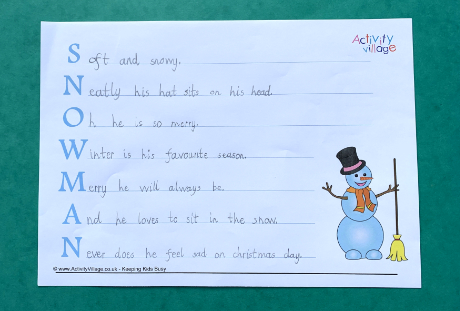 Activity
village
Soft and snowy.
Neatly his hat sits on his head.
Oh he is so merry.
Winter is his favourite season.
Merry he will always be.
And he loves to sit in the snow.
Never does he feel sad on christmas day.
© www.ActivityVillage.co.uk - Keeping Kids Busy